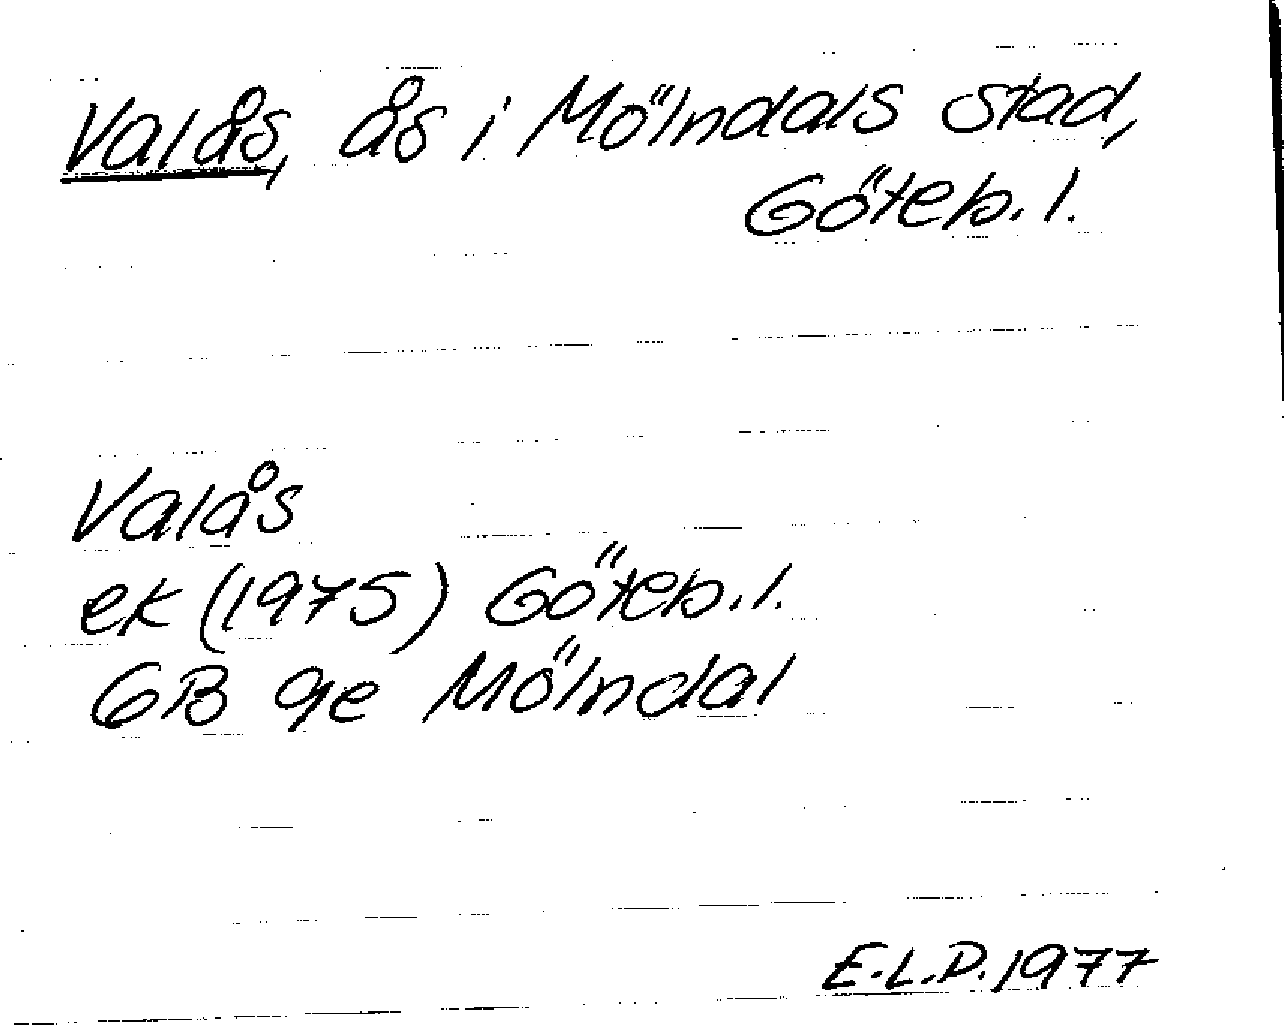 Valås, ås i Mölndals stad,
Göteb. l.
Valås
ek (1975) Göteb. l.
6B 9e Mölndal
E.L.P. 1977